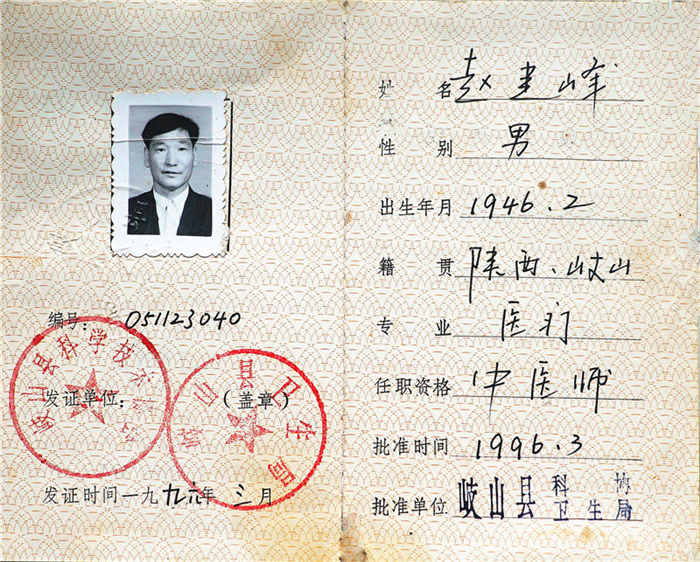 编号：051123040
岐山县科学技术协会
发证单位：（盖章）
岐山县卫生局
发证时间一九九六年三月
姓名 赵建峰
性别 男
出生年月 1946.2
籍贯 陕西、岐山
专业 医疗
任职资格 中医师
批准时间 1996.3
批准单位 岐山县科协卫生局